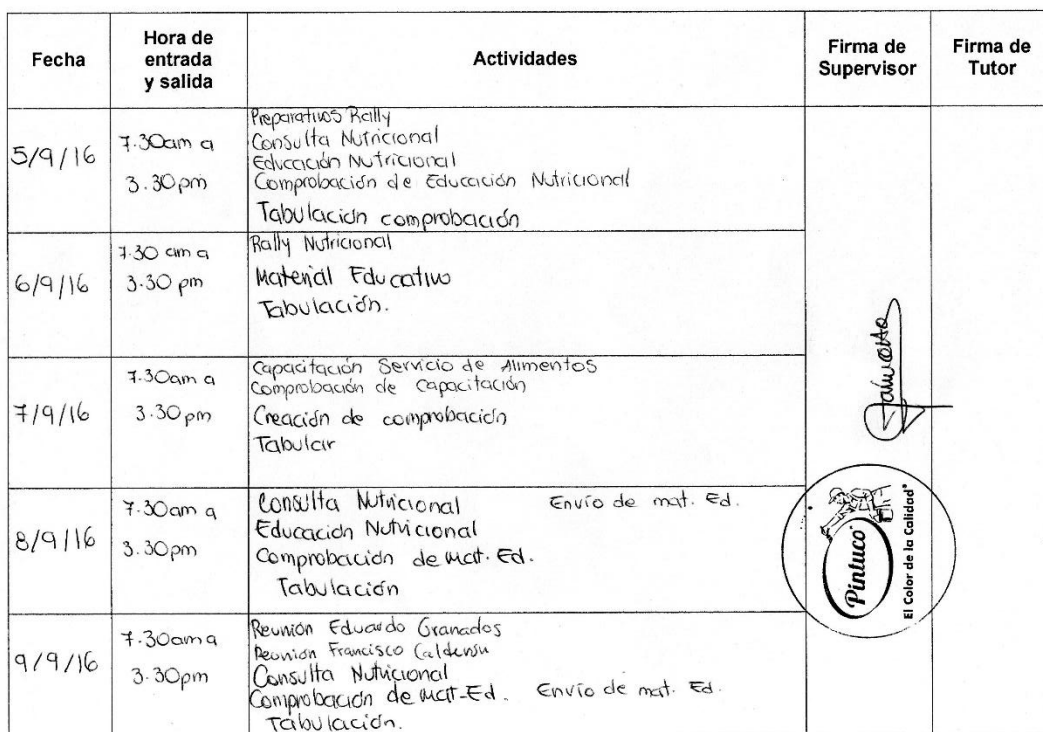 Fecha
Hora de
entrada
y salida
Actividades
Firma de
Supervisor
Firma de
Tutor
5/9/16
7.30am a
3.30pm
Preparativos Rally
Consulta Nutricional
Educación Nutricional
Comprobación de Educación Nutricional
Tabulación comprobación
6/9/16
7.30 am a
3.30 pm
Rally Nutricional
Material Educativo
Tabulación.
7/9/16
7.30am a
3.30pm
Capacitación Servicio de Alimentos
Comprobación de Capacitación
Creación de comprobación
Tabular
8/9/16
7.30am a
3.30pm
Consulta Nutricional Envío de mat. Ed.
Educación Nutricional
Comprobación de mat. Ed.
Tabulación
9/9/16
7.30am a
3.30pm
Reunión Eduardo Granados
Reunión Francisco
Consulta Nutricional
Comprobación de mat-Ed. Envío de mat. Ed.
Tabulación.
Pintuco
El Color de la Calidad